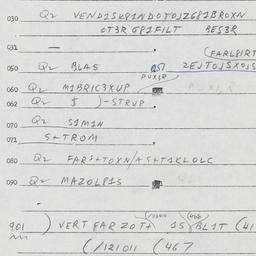 030 Q2 VEND1SKP1NDOTOJZGP1BROXN
OT3R GP1FILT BES3R
031 —
(FARLPIRT
050 Q2 BLAS 051 2EJTOJSXOJS
PUX1R
060 Q2 M1BRIC3XUP
062 Q2 $ )-STRUP
070 Q2 S1M1N
071 S+TROM
080 Q2 FARS+TOXN/ASLT1KLOLC
090 Q2 MAZOLP1S
901 ) VERT FAR ZOT+ 15 BL1T (41
(/121011 (467